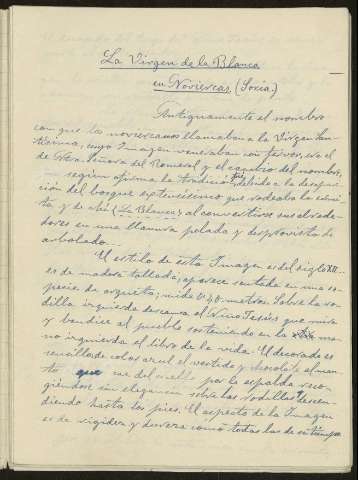 La Virgen de la Blanca
en Noviercas (Soria)
Antiguamente el nombre
con que los noviercanos llamaban a la Virgen
cuya Imagen veneraban con fervor, era el
de Ntra. Señora del Romeral y el cambio del nombre,
según afirma la tradición, fue debido a la desapari-
ción del bosque extensísimo que rodeaba la ermi-
ta, y de ahí (La Blanca) al convertirse sus alrede-
dores en una llanura pelada y desprovista de
arbolado...
El estilo de esta Imagen es del siglo XII...
es de madera tallada; aparece sentada en una es-
pecie de arqueta; mide 0'70 metros. Sobre la ro-
dilla izquierda descansa el Niño Jesús que mira
y bendice al pueblo sosteniendo en la ma-
no izquierda el libro de la vida. El decorado es
sencillo de color azul el vestido y chocolate el man-
to, que cae del cuello por la espalda reco-
giéndose sin elegancia sobre las rodillas y descen-
diendo hasta los pies. El aspecto de la Imagen
es de rigidez y dureza como todas las de su tiempo